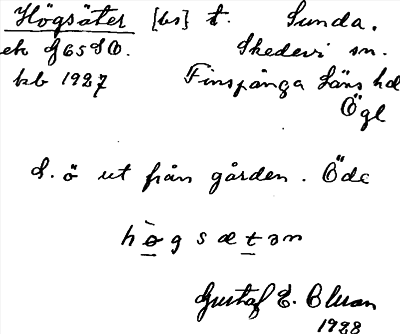 Högsäter [bs] t. Sunda.
ek J65SO. Skedevi sn.
bb 1927 Finspånga Läns hd
Ögl
S. ö ut från gården. Öde
hògsætən
Gustaf E. Olsson
1928